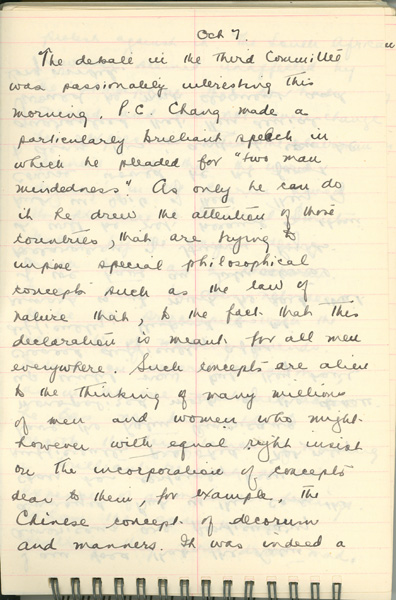 Oct 7.
The debate in the Third Committee
was passionately interesting this
morning. P.C. Chang made a
particularly brilliant speech in
which he pleaded for "two man
mindedness". As only he can do
it he drew the attention of those
countries, that are trying to
impose special philosophical
concepts such as the law of
nature, to the fact that this
declaration is meant for all men
everywhere. Such concepts are alien
to the thinking of many millions
of men and women who might
however with equal right insist
on the incorporation of concepts
dear to them, for example, the
Chinese concept of decorum
and manners. It was indeed a